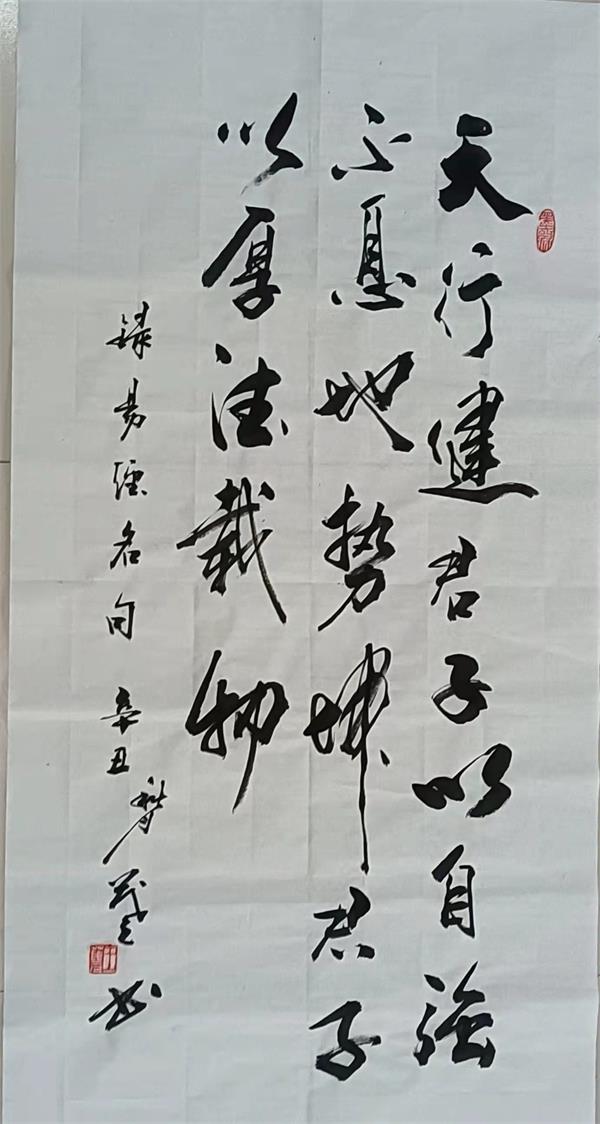 天行健君子以自強
不息地势坤君子
以厚德載物
錄易經名句 辛丑 書